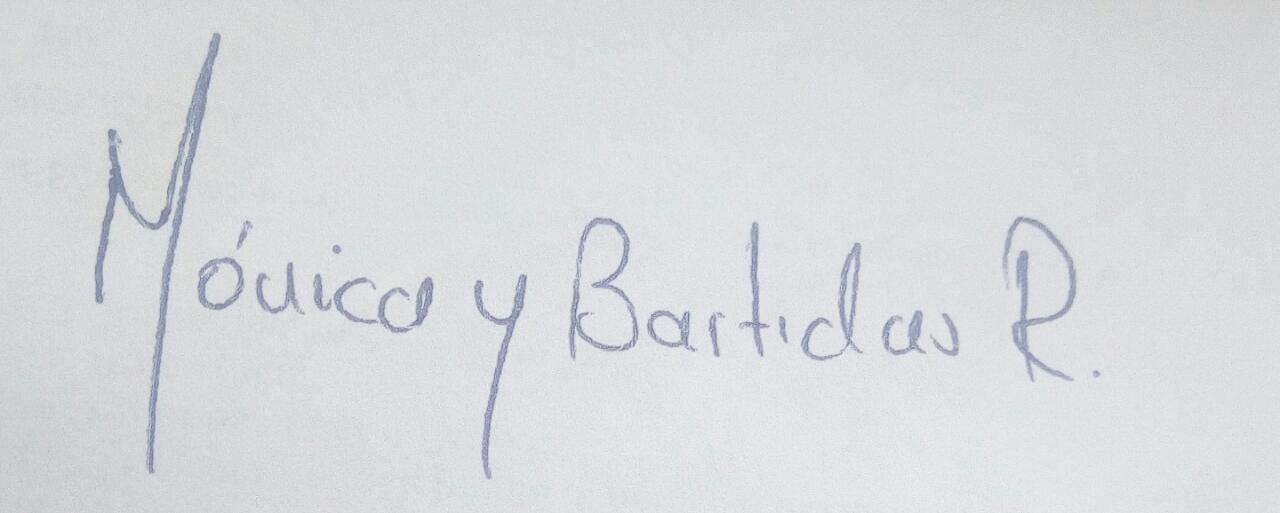 Mónica y Bastidas R.